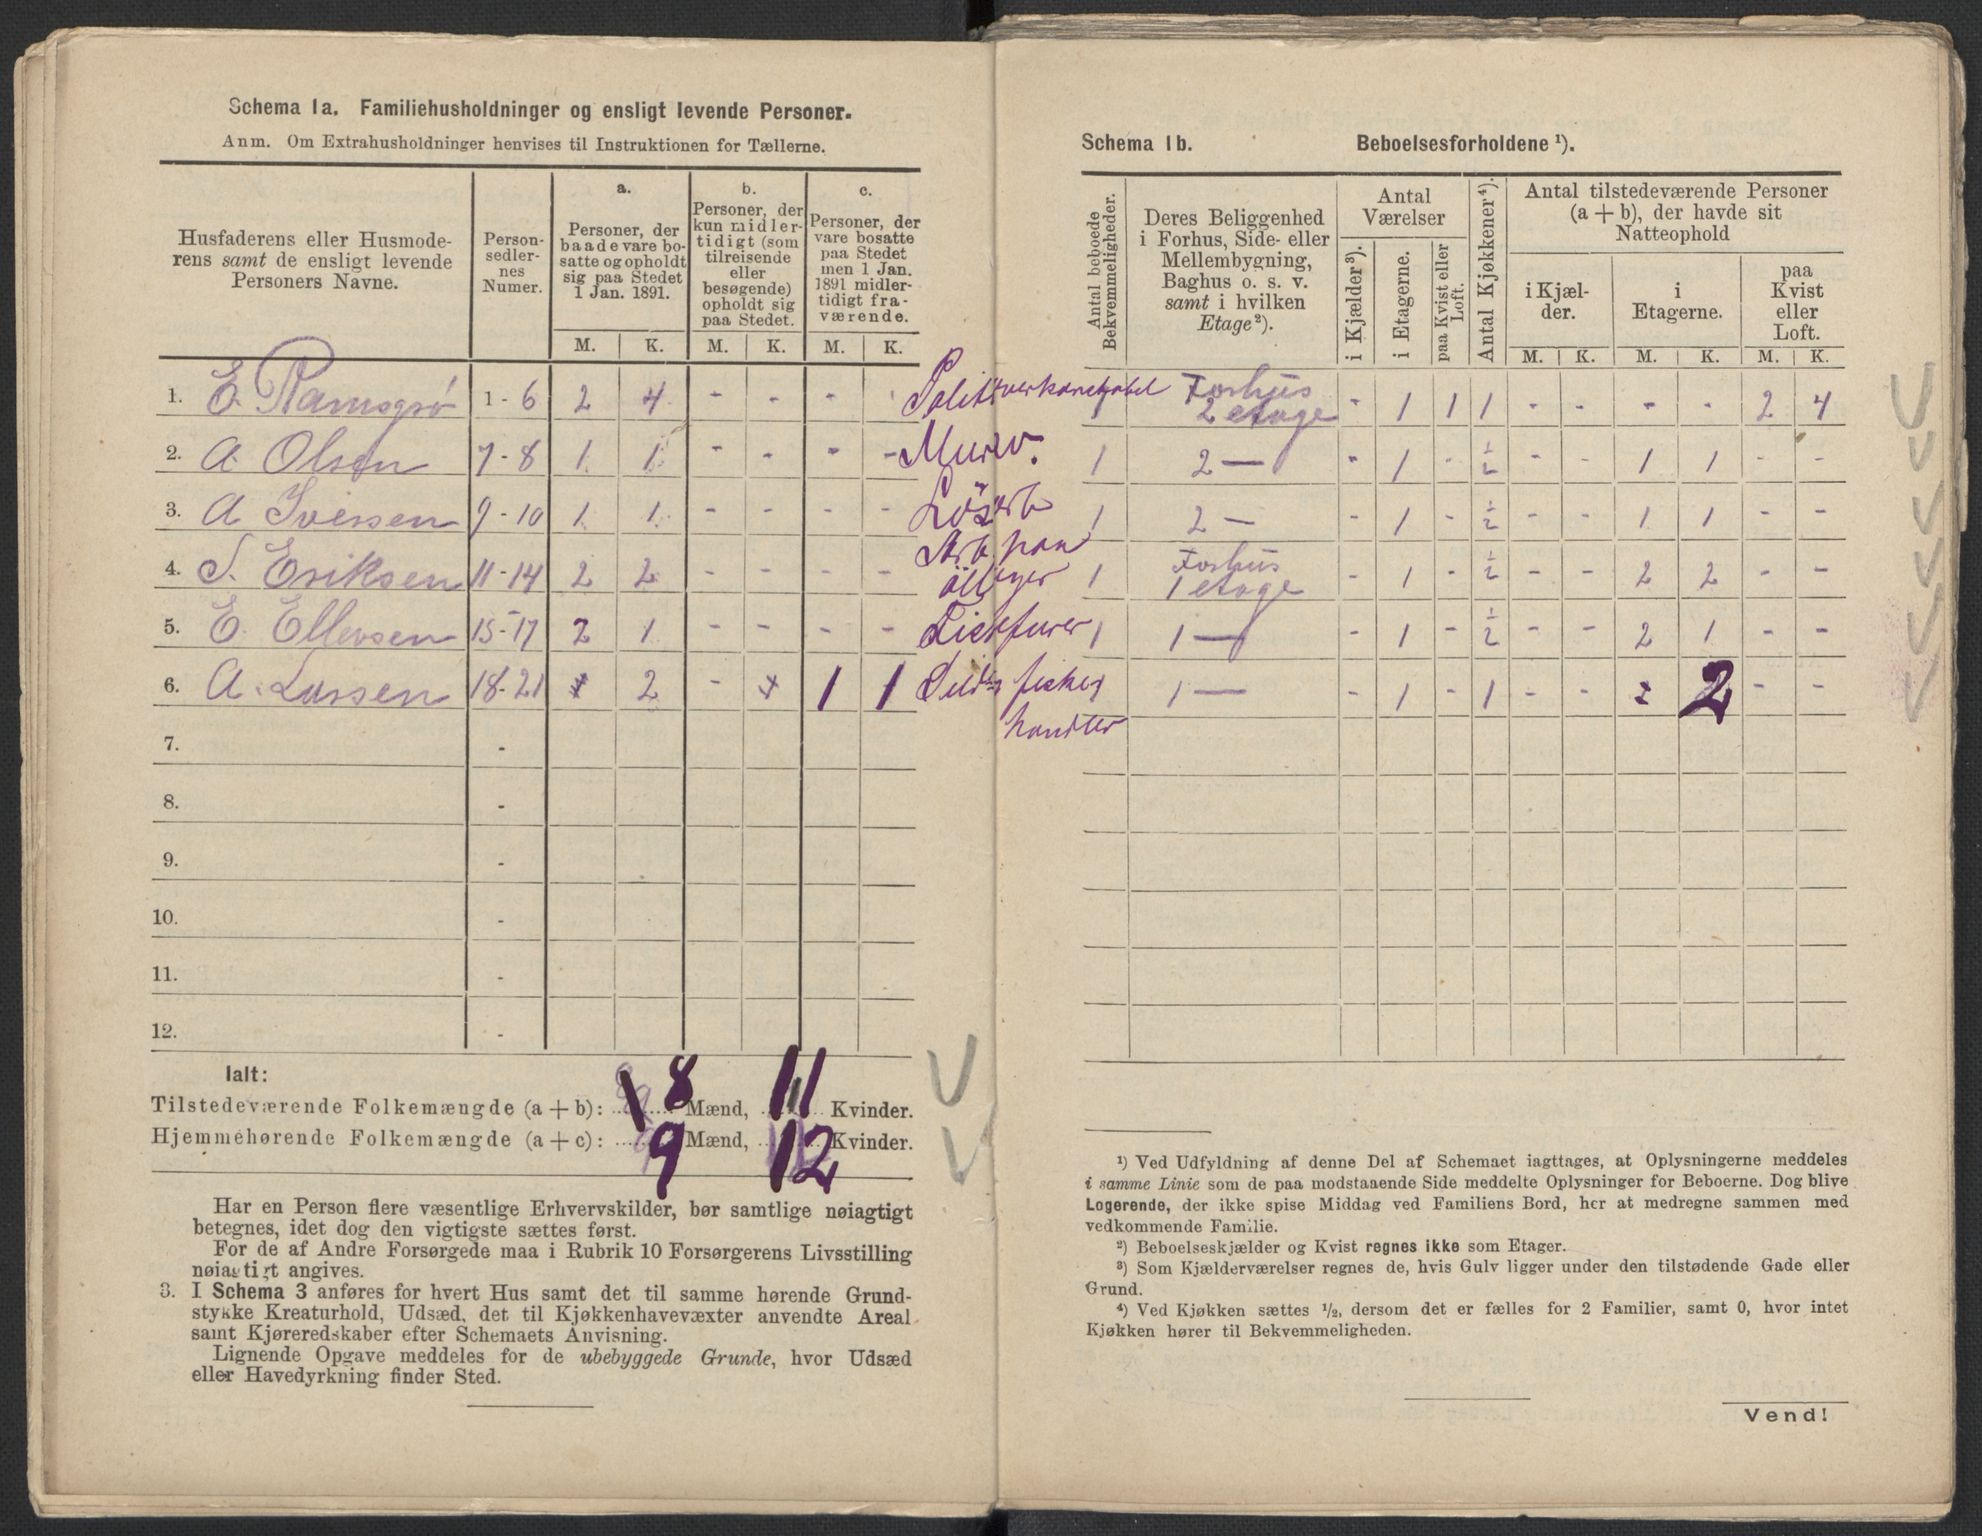 Schema 1a. Familiehusholdninger og ensligt levende Personer.
Anm. Om Extrahusholdninger henvises til Instruktionen for Tællerne.
Husfaderens eller Husmoderens samt de ensligt levende Personers Navne.
Personsedlernes Numer.
a. Personer, der baade vare bosatte og opholdt sig paa Stedet 1 Jan. 1891.
b. Personer, der kun midlertidigt (som tilreisende eller besøgende) opholdt sig paa Stedet.
c. Personer, der vare bosatte paa Stedet men 1 Jan. 1891 midlertidigt fraværende.
M. K. M. K. M. K.
1. E. Ramsgrø 1-6 2 4 - - -
2. A. Olsen 7-8 1 1 - - - -
3. A Iversen 9-10 1 1 - - - -
4. S. Eriksen 11-14 2 2 - - - -
5. E. Ellevsen 15-17 2 1 - - - -
6. A. Larsen 18-21 2 - 1 1
7. -
8. -
9. -
10. -
11. -
12. -
Ialt:
Tilstedeværende Folkemængde (a + b): 8 Mænd, 11 Kvinder.
Hjemmehørende Folkemængde (a + c): 9 Mænd, 12 Kvinder.
Har en Person flere væsentlige Erhvervskilder, bør samtlige nøiagtigt
betegnes, idet dog den vigtigste sættes først.
For de af Andre Forsørgede maa i Rubrik 10 Forsørgerens Livsstilling
nøiagtigt angives.
3. I Schema 3 anføres for hvert Hus samt det til samme hørende Grund-
stykke Kreaturhold, Udsæd, det til Kjøkkenhavevæxter anvendte Areal
samt Kjøreredskaber efter Schemaets Anvisning.
Lignende Opgave meddeles for de ubebyggede Grunde, hvor Udsæd
eller Havedyrkning finder Sted.
Schema 1b. Beboelsesforholdene ¹).
Antal beboede Bekvemmeligheder.
Deres Beliggenhed i Forhus, Side- eller Mellembygning, Baghus o. s. v. samt i hvilken Etage ²).
Antal Værelser
i Kjælder ³).
i Etagerne.
paa Kvist eller Loft.
Antal Kjøkkener ⁴).
Antal tilstedeværende Personer (a + b), der havde sit Natteophold
i Kjælder.
i Etagerne.
paa Kvist eller Loft.
M. K. M. K. M. K.
Politiverkonstabel 1 Forhus 2 etage - 1 1 1 - - - - 2 4
Murer. 1 2 — - 1 - ½ - - 1 1 - -
Løsarb 1 2 — - 1 - ½ - - 1 1 - -
Arb. paa ølbryger 1 Forhus 1 etage - 1 - ½ - - 2 2 - -
1 1 — - 1 - ½ - - 2 1 - -
fisker handler 1 — - 1 - 1 - - 2 - -
¹) Ved Udfyldning af denne Del af Schemaet iagttages, at Oplysningerne meddeles
i samme Linie som de paa modstaaende Side meddelte Oplysninger for Beboerne. Dog blive
Logerende, der ikke spise Middag ved Familiens Bord, her at medregne sammen med
vedkommende Familie.
²) Beboelseskjælder og Kvist regnes ikke som Etager.
³) Som Kjælderværelser regnes de, hvis Gulv ligger under den tilstødende Gade eller
Grund.
⁴) Ved Kjøkken sættes ½, dersom det er fælles for 2 Familier, samt 0, hvor intet
Kjøkken hører til Bekvemmeligheden.
Vend!